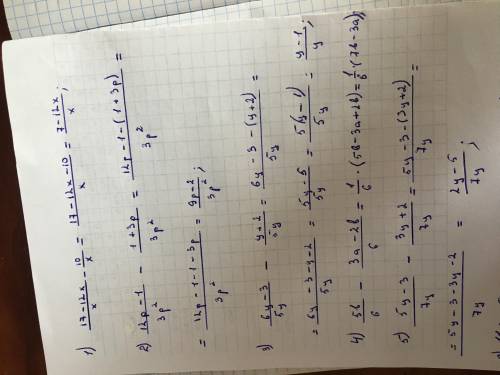 1) (17-12x)/x - 10/x = (17-12x-10)/x = (7-12x)/x ;
2) (12p-1)/3p² - (1+3p)/3p² = (12p-1-(1+3p))/3p² =
= (12p-1-1-3p)/3p² = (9p-2)/3p² ;
3) (6y-3)/5y - (y+2)/5y = (6y-3-(y+2))/5y =
= (6y-3-y-2)/5y = (5y-5)/5y = 5(y-1)/5y = (y-1)/y ;
4) 5b/6 - (3a-2b)/6 = 1/6 · (5b-3a+2b) = 1/6 · (7b-3a);
5) (5y-3)/7y - (3y+2)/7y = (5y-3-(3y+2))/7y =
= (5y-3-3y-2)/7y = (2y-5)/7y ;